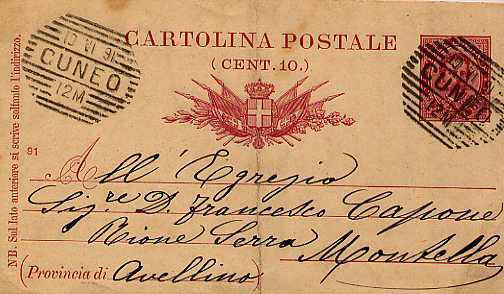 CARTOLINA POSTALE
(CENT. 10.)
10 VI 91
CUNEO
12M
10 VI
CUNEO
12M
NB. Sul lato anteriore si scrive soltanto l'indirizzo.
91
All' Egregio
Sigre D. Francesco Capone
Rione Serra
Montella
(Provincia di Avellino)